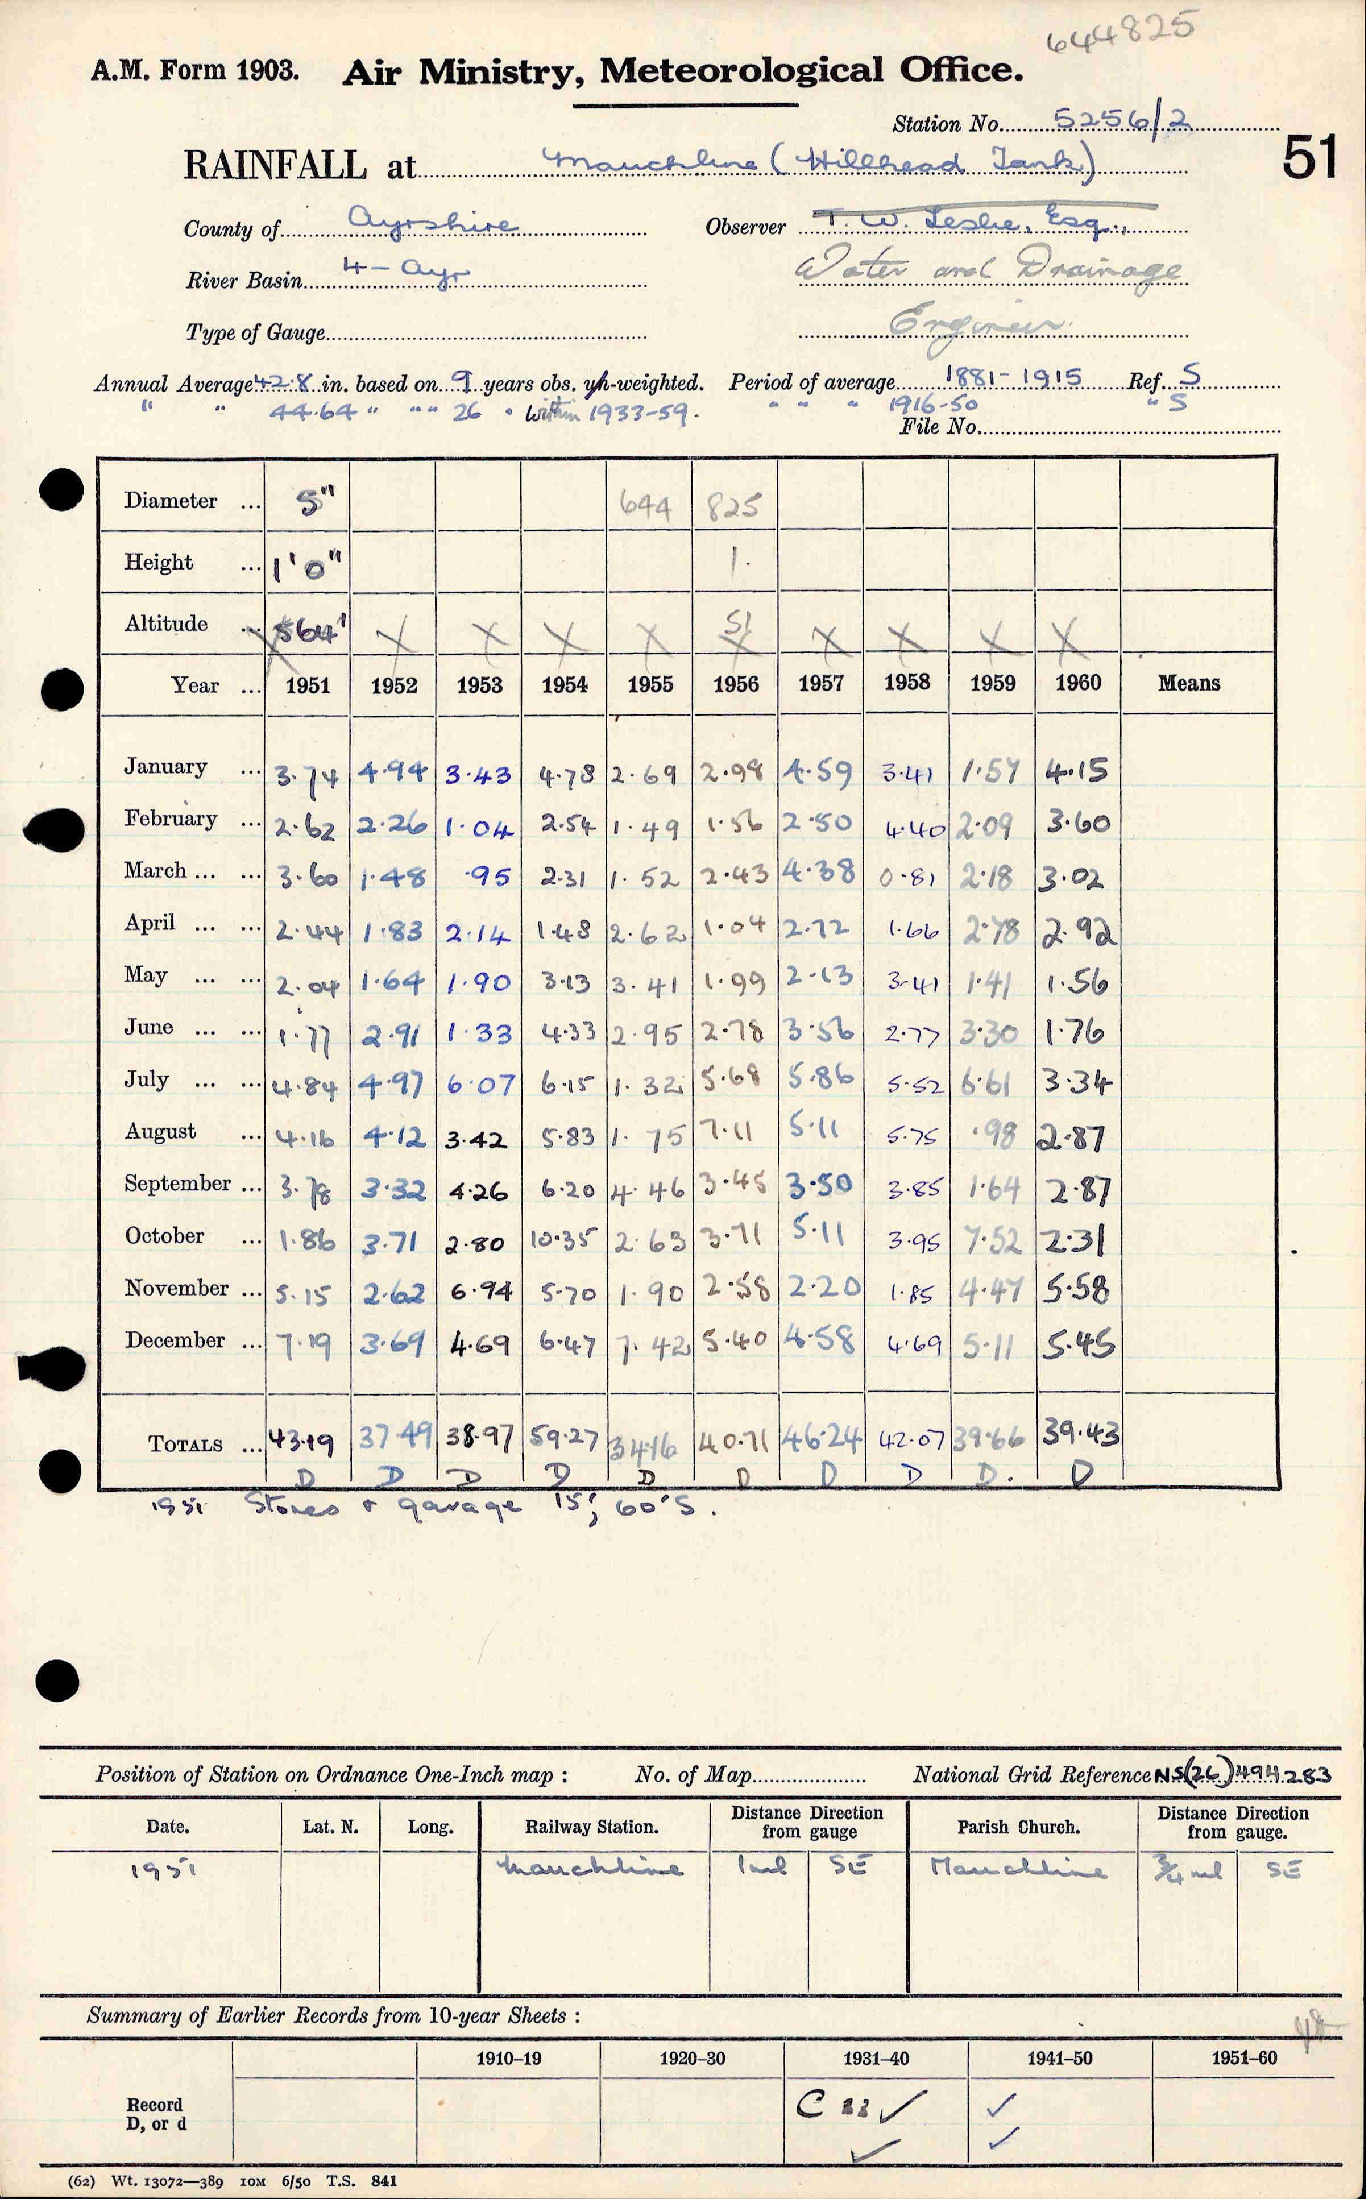 644825
A.M. Form 1903. Air Ministry, Meteorological Office.
Station No. 5256/2
RAINFALL at Mauchline (Hillhead Tank) 51
County of Ayrshire Observer T. W. Leslie, Esq.,
River Basin 4 - Ayr Water and Drainage
Type of Gauge Engineer
Annual Average 42.8 in. based on 9 years obs. yh-weighted. Period of average 1881-1915 Ref. S
" " 44.64 " " " 26 " within 1933-59. " " " 1916-50 " S
File No.
Diameter ... 5" 644 825
Height ... 1'0" 1.
Altitude ... 564' 51
X X X X X X X X X X
Year ... 1951 1952 1953 1954 1955 1956 1957 1958 1959 1960 Means
January ... 3.74 4.94 3.43 4.78 2.69 2.98 4.59 3.41 1.57 4.15
February ... 2.62 2.26 1.04 2.54 1.49 1.56 2.50 4.40 2.09 3.60
March ... ... 3.60 1.48 .95 2.31 1.52 2.43 4.38 0.81 2.18 3.02
April ... ... 2.44 1.83 2.14 1.48 2.62 1.04 2.72 1.66 2.78 2.92
May ... ... 2.04 1.64 1.90 3.13 3.41 1.99 2.13 3.41 1.41 1.56
June ... ... 1.77 2.91 1.33 4.33 2.95 2.78 3.56 2.77 3.30 1.76
July ... ... 4.84 4.97 6.07 6.15 1.32 5.68 5.86 5.52 6.61 3.34
August ... 4.16 4.12 3.42 5.83 1.75 7.11 5.11 5.75 .98 2.87
September ... 3.78 3.32 4.26 6.20 4.46 3.45 3.50 3.85 1.64 2.87
October ... 1.86 3.71 2.80 10.35 2.63 3.71 5.11 3.95 7.52 2.31
November ... 5.15 2.62 6.94 5.70 1.90 2.58 2.20 1.85 4.47 5.58
December ... 7.19 3.69 4.69 6.47 7.42 5.40 4.58 4.69 5.11 5.45
TOTALS ... 43.19 37.49 38.97 59.27 34.16 40.71 46.24 42.07 39.66 39.43
D D D D D D D D D. D
1951 Stores & garage 15', 60'S.
Position of Station on Ordnance One-Inch map : No. of Map National Grid Reference NS(26)494283
Date. Lat. N. Long. Railway Station. Distance Direction from gauge Parish Church. Distance Direction from gauge.
1951 Mauchline 1 ml SE Mauchline ¾ ml SE
Summary of Earlier Records from 10-year Sheets :
1910–19 1920–30 1931–40 1941–50 1951–60
Record
D, or d
C 33 ✓ ✓
✓ ✓
(62) Wt. 13072—389 10M 6/50 T.S. 841